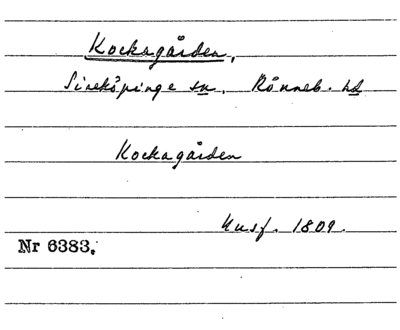 Kocksgården,
Simeköpinge sn, Rönneb. hd
Kocksgården
Husf. 1809.
Nr 6383.